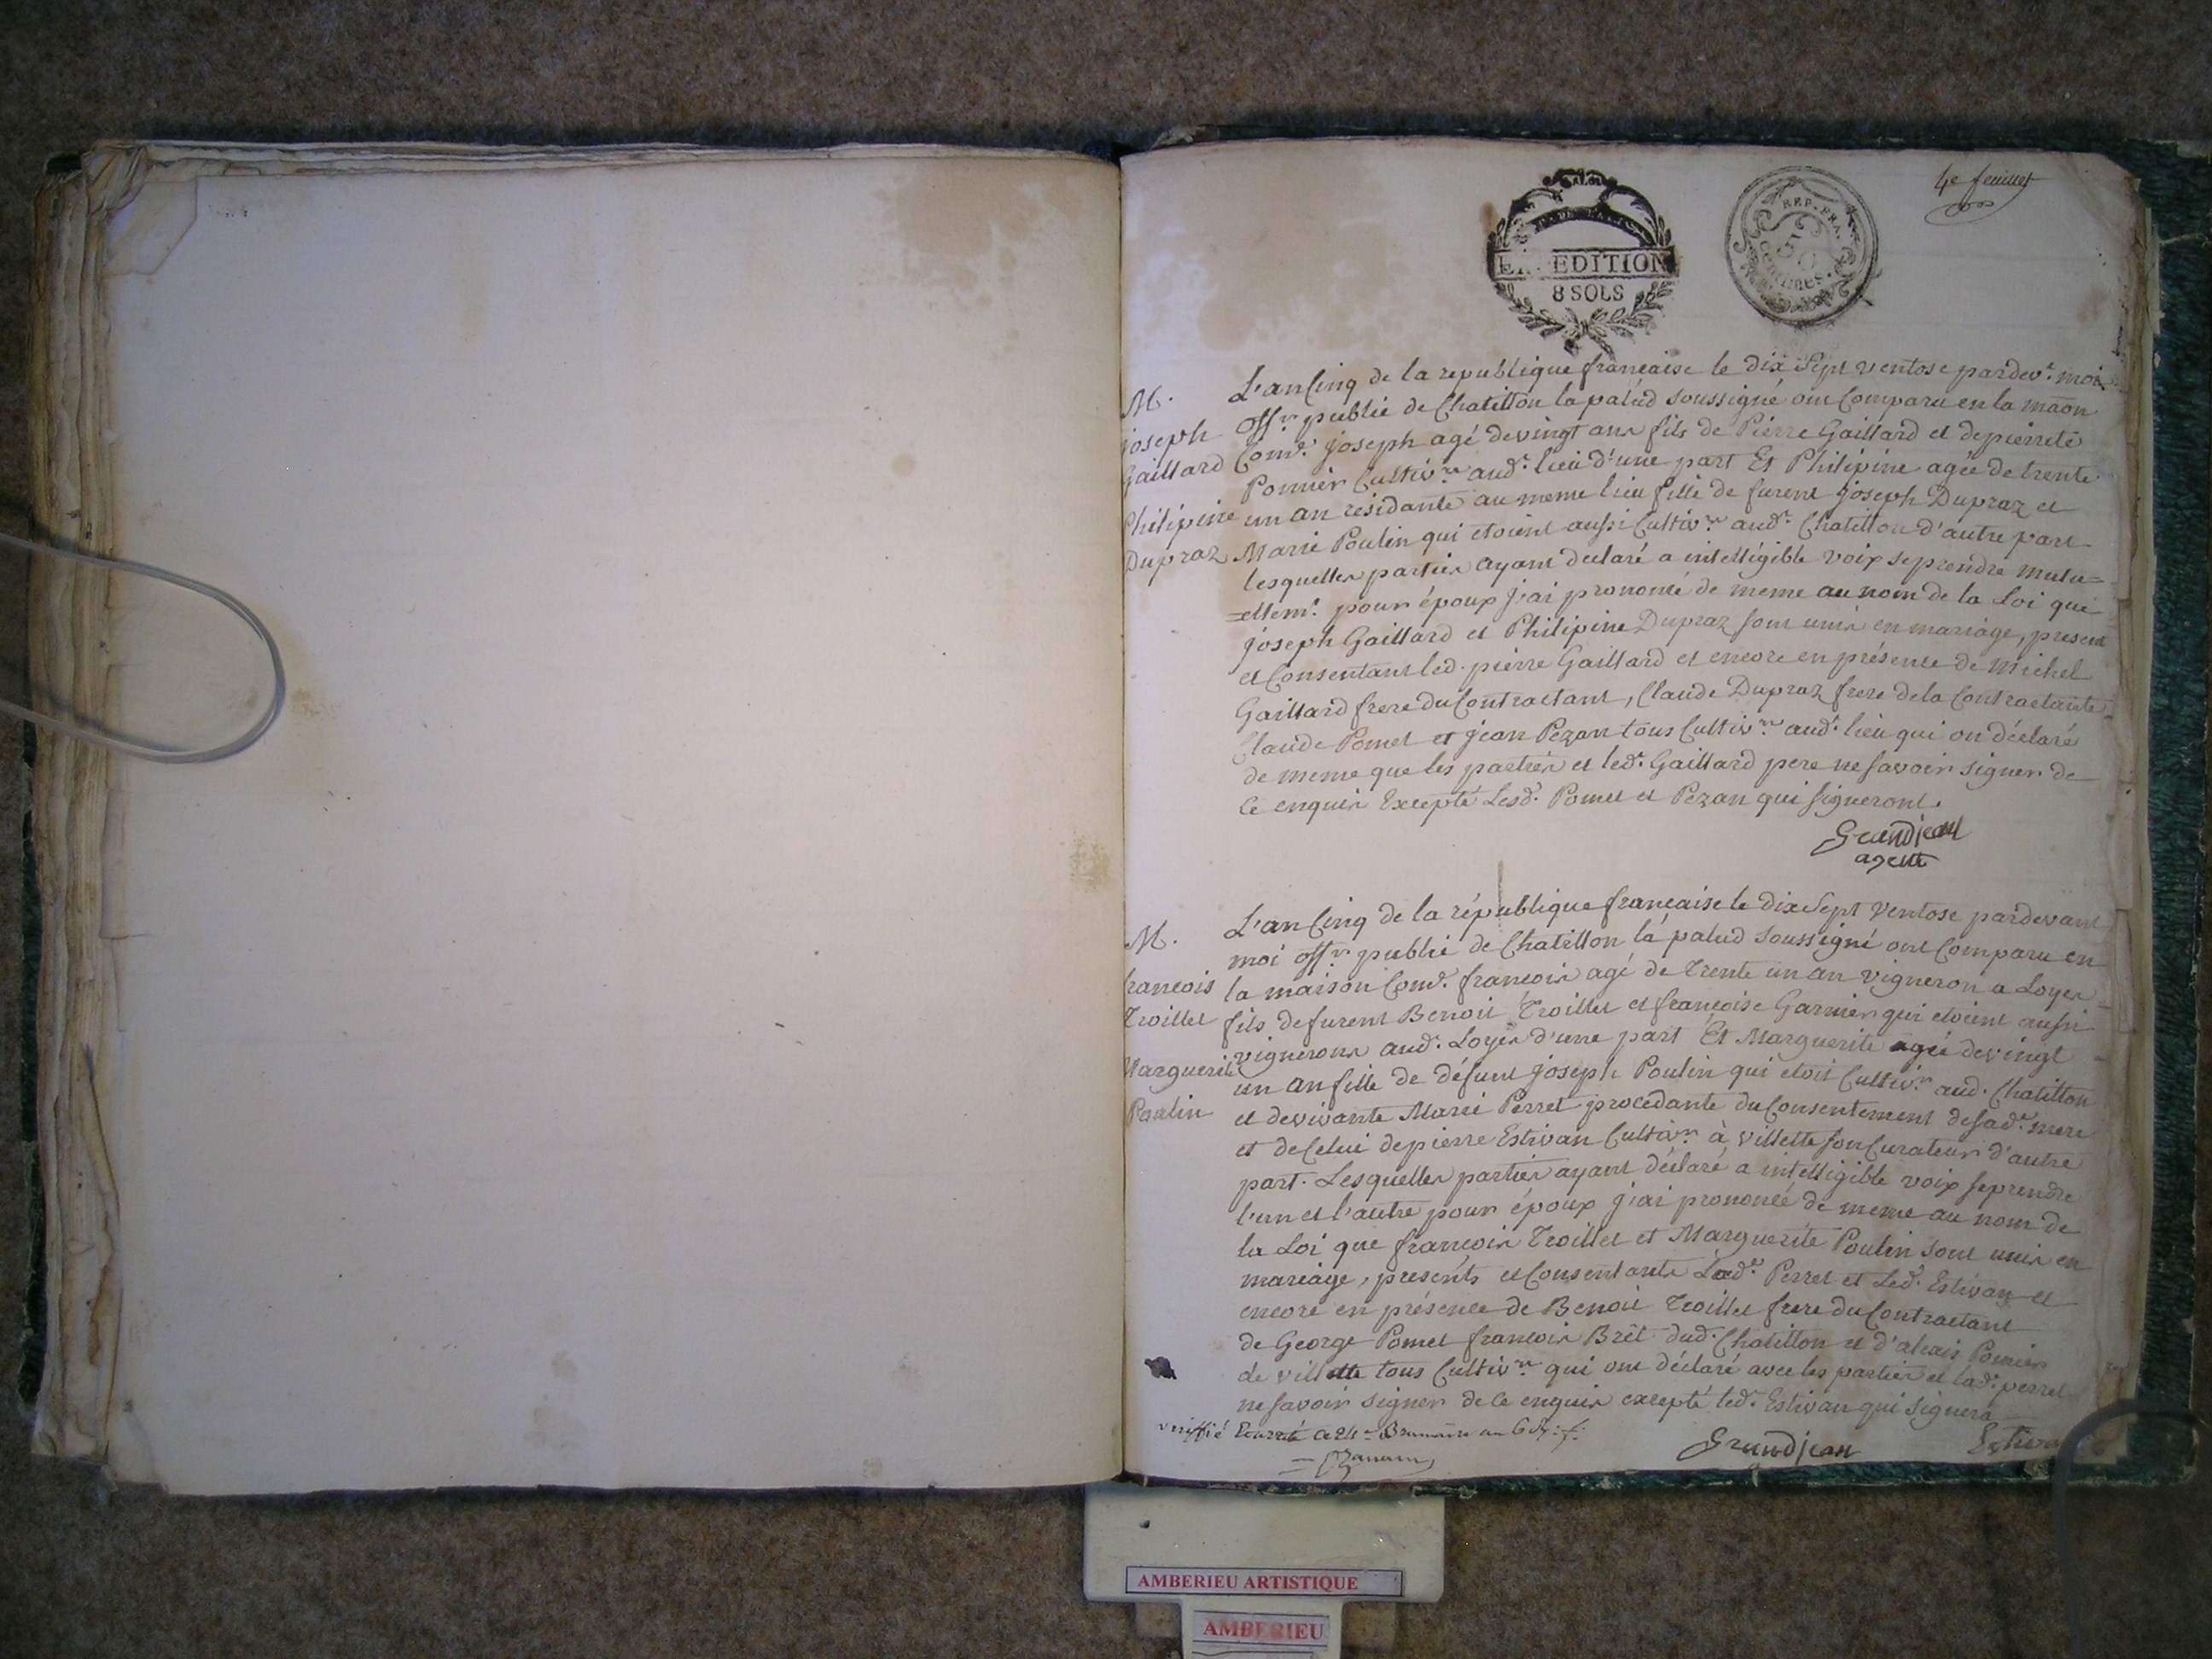 4e feuillet
EXPEDITION
8 SOLS
REP. FRA.
50
CENTIMES.
M.
joseph
Gaillard
Philipine
Dupraz
L'an Cinq de la republique francaise le dix Sept ventose pardevt. moi
offr. public de Chatillon la palud soussigné ont Comparu en la maon
Come. joseph agé de vingt ans fils de Pierre Gaillard et de pierrette
Ponnier Cultivrs. audt. lieu d'une part Et Philipine agée de trente
un an residante au meme lieu fille de furent joseph Dupraz et
Marie Poulin qui etoient aussi Cultivrs. audt. Chatillon d'autre part
lesquelles parties ayant declaré a intelligible voix se prendre mutu=
=ellemt. pour époux j'ai prononcé de meme au nom de la Loi que
joseph Gaillard et Philipine Dupraz sont unis en mariage, present
et Consentant led. pierre Gaillard et encore en présence de Michel
Gaillard frere du Contractant, Claude Dupraz frere de la Contractante
Claude Pomet et jean Pezan tous Cultivrs. audt. lieu qui on déclaré
de meme que les parties et ledt. Gaillard pere ne savoir signer de
Ce enquis Excepté Lesdt. Pomet et Pezan qui signeront.
Grandjean
agent
M.
francois
Troillet
Marguerite
Poulin
L'an Cinq de la république francaise le dix Sept Ventose pardevant
moi offr. public de Chatillon la palud soussigné ont Comparu en
la maison Come. francois agé de Trente un an vigneron a Loyes
fils de furent Benoit Troillet et francoise Garnier qui etoient aussi
vignerons aud. Loyes d'une part Et Marguerite agée de vingt
un an fille de défunt joseph Poulin qui etoit Cultivr. aud. Chatillon
et de vivante Marie Perret procedante du Consentement de sade. mere
et de Celui de pierre Estivan Cultivr. à villette son Curateur d'autre
part. Lesquelles parties ayant déclaré a intelligible voix se prendre
l'un et l'autre pour époux j'ai prononcé de meme au nom de
la Loi que francois Troillet et Marguerite Poulin sont unis en
mariage, presents et Consentants Lade. Perret et Ledt. Estivan et
encore en présence de Benoit Troillet frere du Contractant
de George Pomet francois Brêt dud. Chatillon et d'alexis
de villette tous Cultivrs. qui ont déclaré avec les parties et lade. perret
ne savoir signer de Ce enquis excepté ledt. Estivan qui signera
veriffié Ce 24 Brumaire an 6
Grandjean
Estivan
AMBERIEU ARTISTIQUE
AMBERIEU